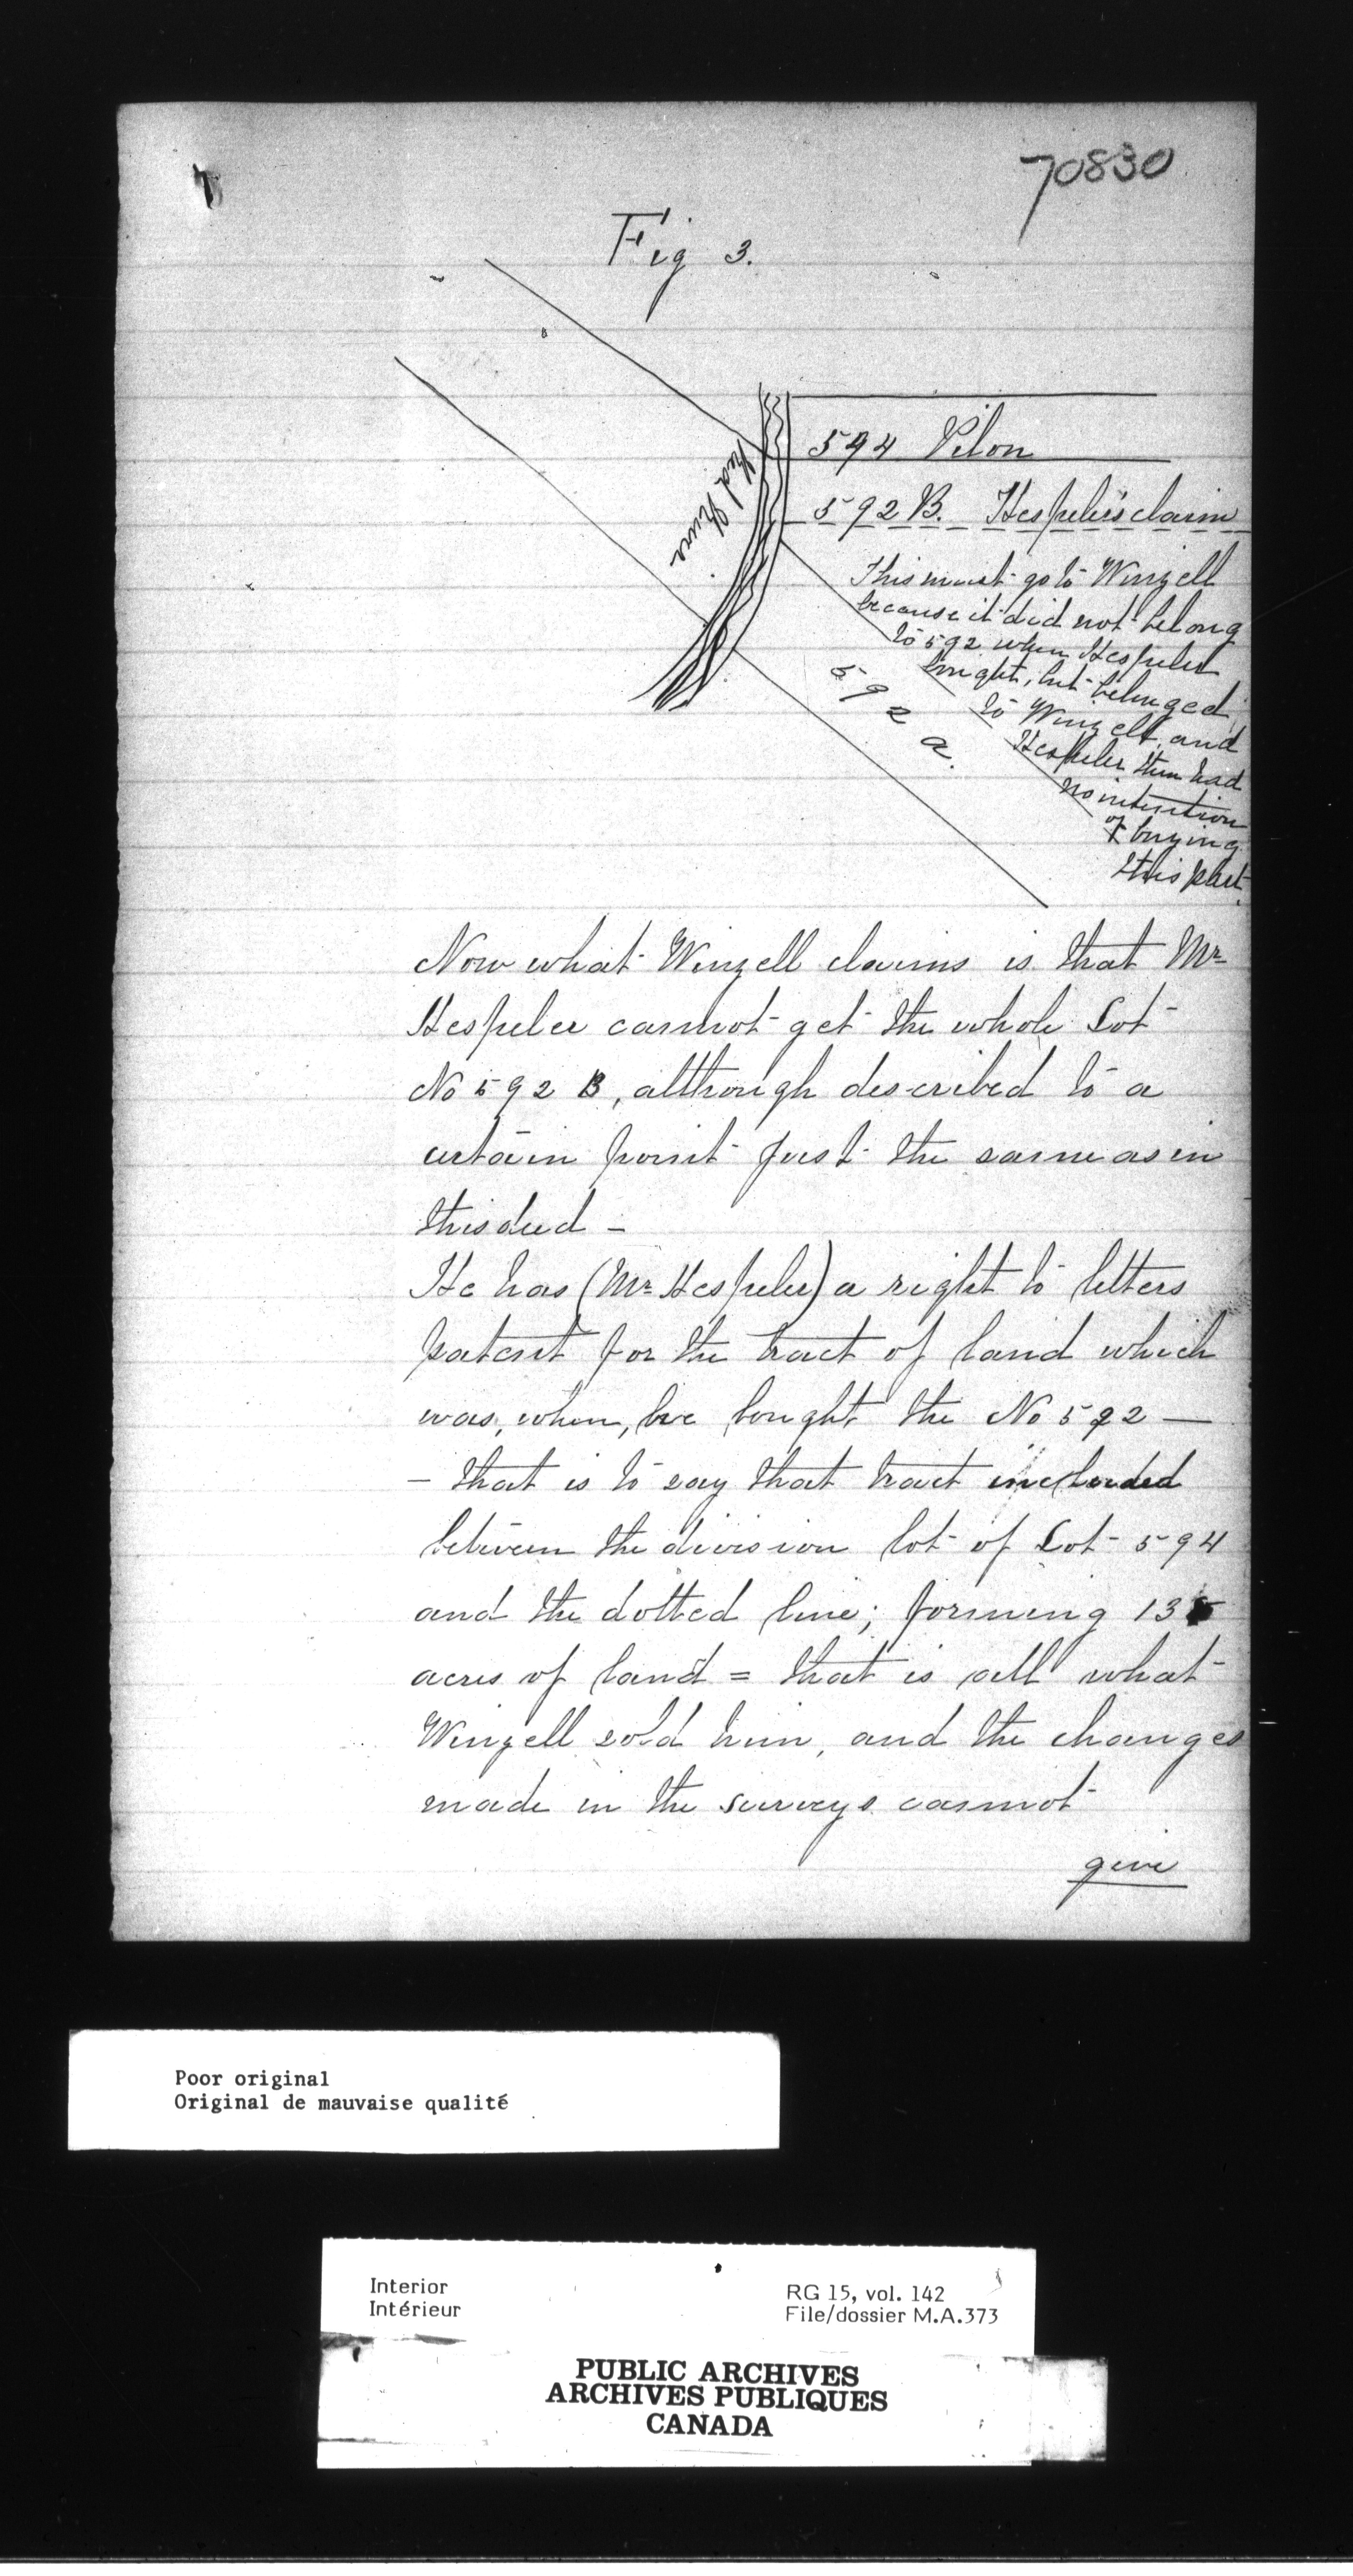 70830
Fig 3.
Red River
594 Pilon
592 B. Hespeler's claim
This must go to Winzell
because it did not belong
to 592 when Hespeler
bought, but belonged
to Winzell, and
Hespeler then had
no intention
of buying
this part.
592 a.
Now what Winzell claims is that Mr
Hespeler cannot get the whole Lot
No 592 B, although described to a
certain point just the same as in
this deed –
He has (Mr Hespeler) a right to letters
patent for the tract of land which
was, when, he bought the No 592 —
– that is to say that tract included
between the division lot of Lot 594
and the dotted line; forming 135
acres of land = that is all what
Winzell sold him, and the changes
made in the surveys cannot
give
Poor original
Original de mauvaise qualité
Interior
Intérieur
RG 15, vol. 142
File/dossier M.A.373
PUBLIC ARCHIVES
ARCHIVES PUBLIQUES
CANADA